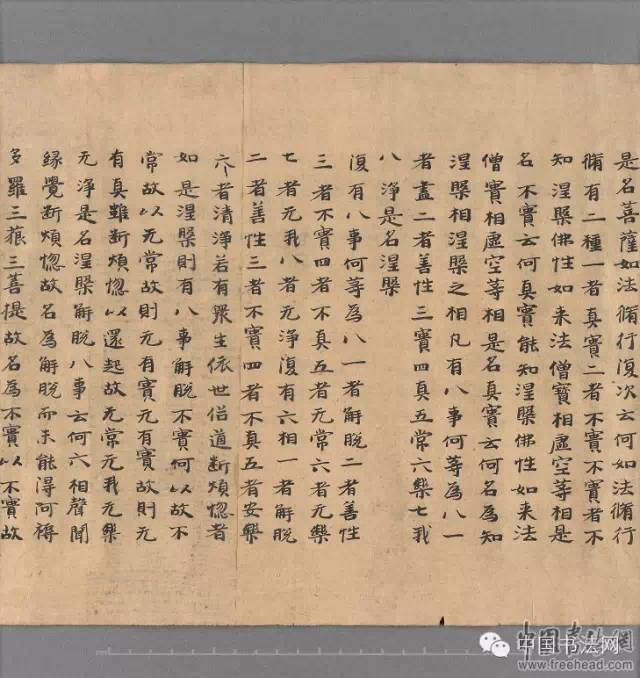 是名菩薩如法脩行復次云何如法脩行
脩有二種一者真實二者不實不實者不
知涅槃佛性如来法僧寳相虛空等相是
名不實云何真實能知涅槃佛性如来法
僧實相虛空等相是名真實云何名為知
涅槃相涅槃之相凡有八事何等為八一
者盡二者善性三實四真五常六樂七我
八淨是名涅槃
復有八事何等為八一者解脫二者善性
三者不實四者不真五者无常六者无樂
七者无我八者无淨復有六相一者解脫
二者善性三者不實四者不真五者安樂
六者清淨若有眾生依世俗道断煩惚者
如是涅槃則有八事解脫不實何以故不
常故以无常故則无有實无有實故則无
有真雖断煩惚以還起故无常无我无樂
无淨是名涅槃解脫八事云何六相聲聞
緣覺断煩惚故名為解脫而未能得阿耨
多羅三藐三菩提故名為不實以不實故
中国书法网
中國書法網
www.freehead.com